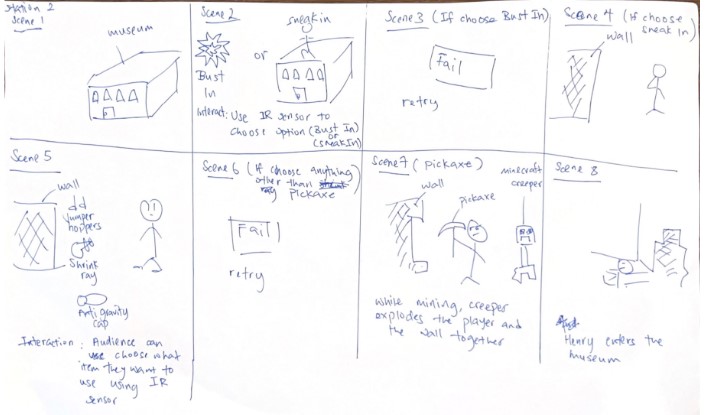 Station 2
Scene 1
museum
Scene 2
sneak in
Bust
In
or
Interact: Use IR sensor to
choose option (Bust In)
or
(sneak In)
Scene 3 (If choose Bust In)
Fail
retry
Scene 4 (if choose
sneak In)
wall
Scene 5
wall
Jumper
hoppers
Shrink
ray
Anti gravity
cap
Interaction : Audience can
choose what
item they want to
use using IR
sensor
Scene 6 (If choose anything
other than
pickaxe)
Fail
retry
Scene 7 (pickaxe)
wall
pickaxe
minecraft
creeper
while mining, creeper
explodes the player and
the wall together
Scene 8
Henry enters the
museum